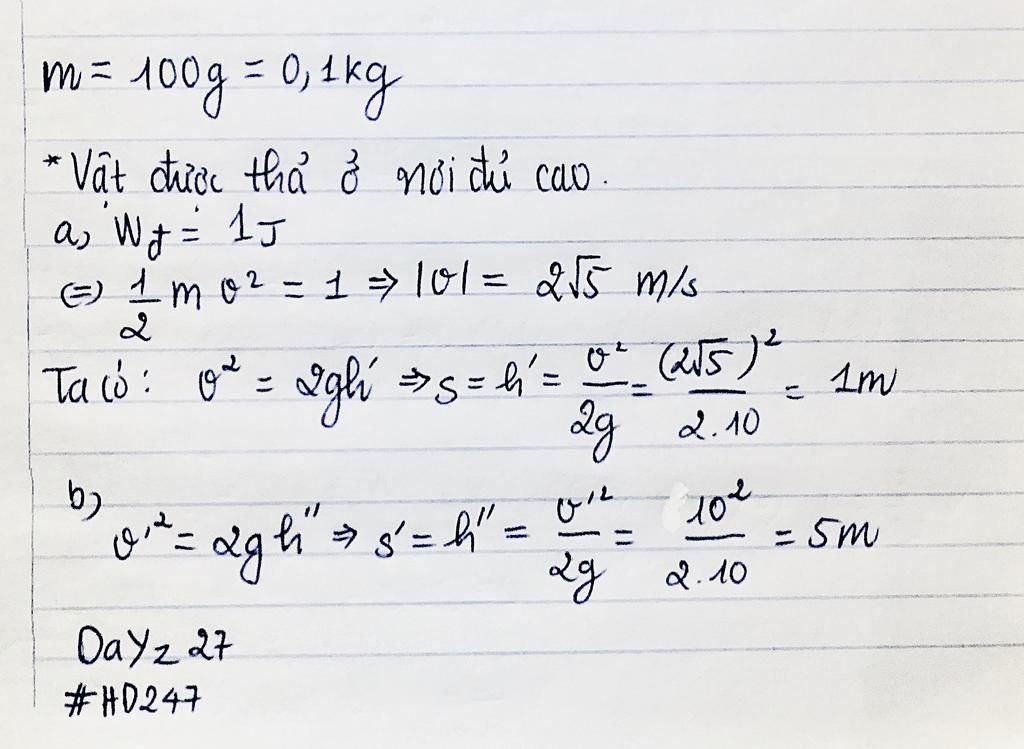 m = 100g = 0,1kg
* Vật được thả ở nơi đủ cao.
a, Wđ = 1J
⇔ 1/2 m v² = 1 ⇒ |v| = 2√5 m/s
Ta có: v² = 2gh' ⇒ s = h' = v²/2g = (2√5)²/2.10 = 1m
b,
v'² = 2gh'' ⇒ s' = h'' = v'²/2g = 10²/2.10 = 5m
DaYz 27
#HD247